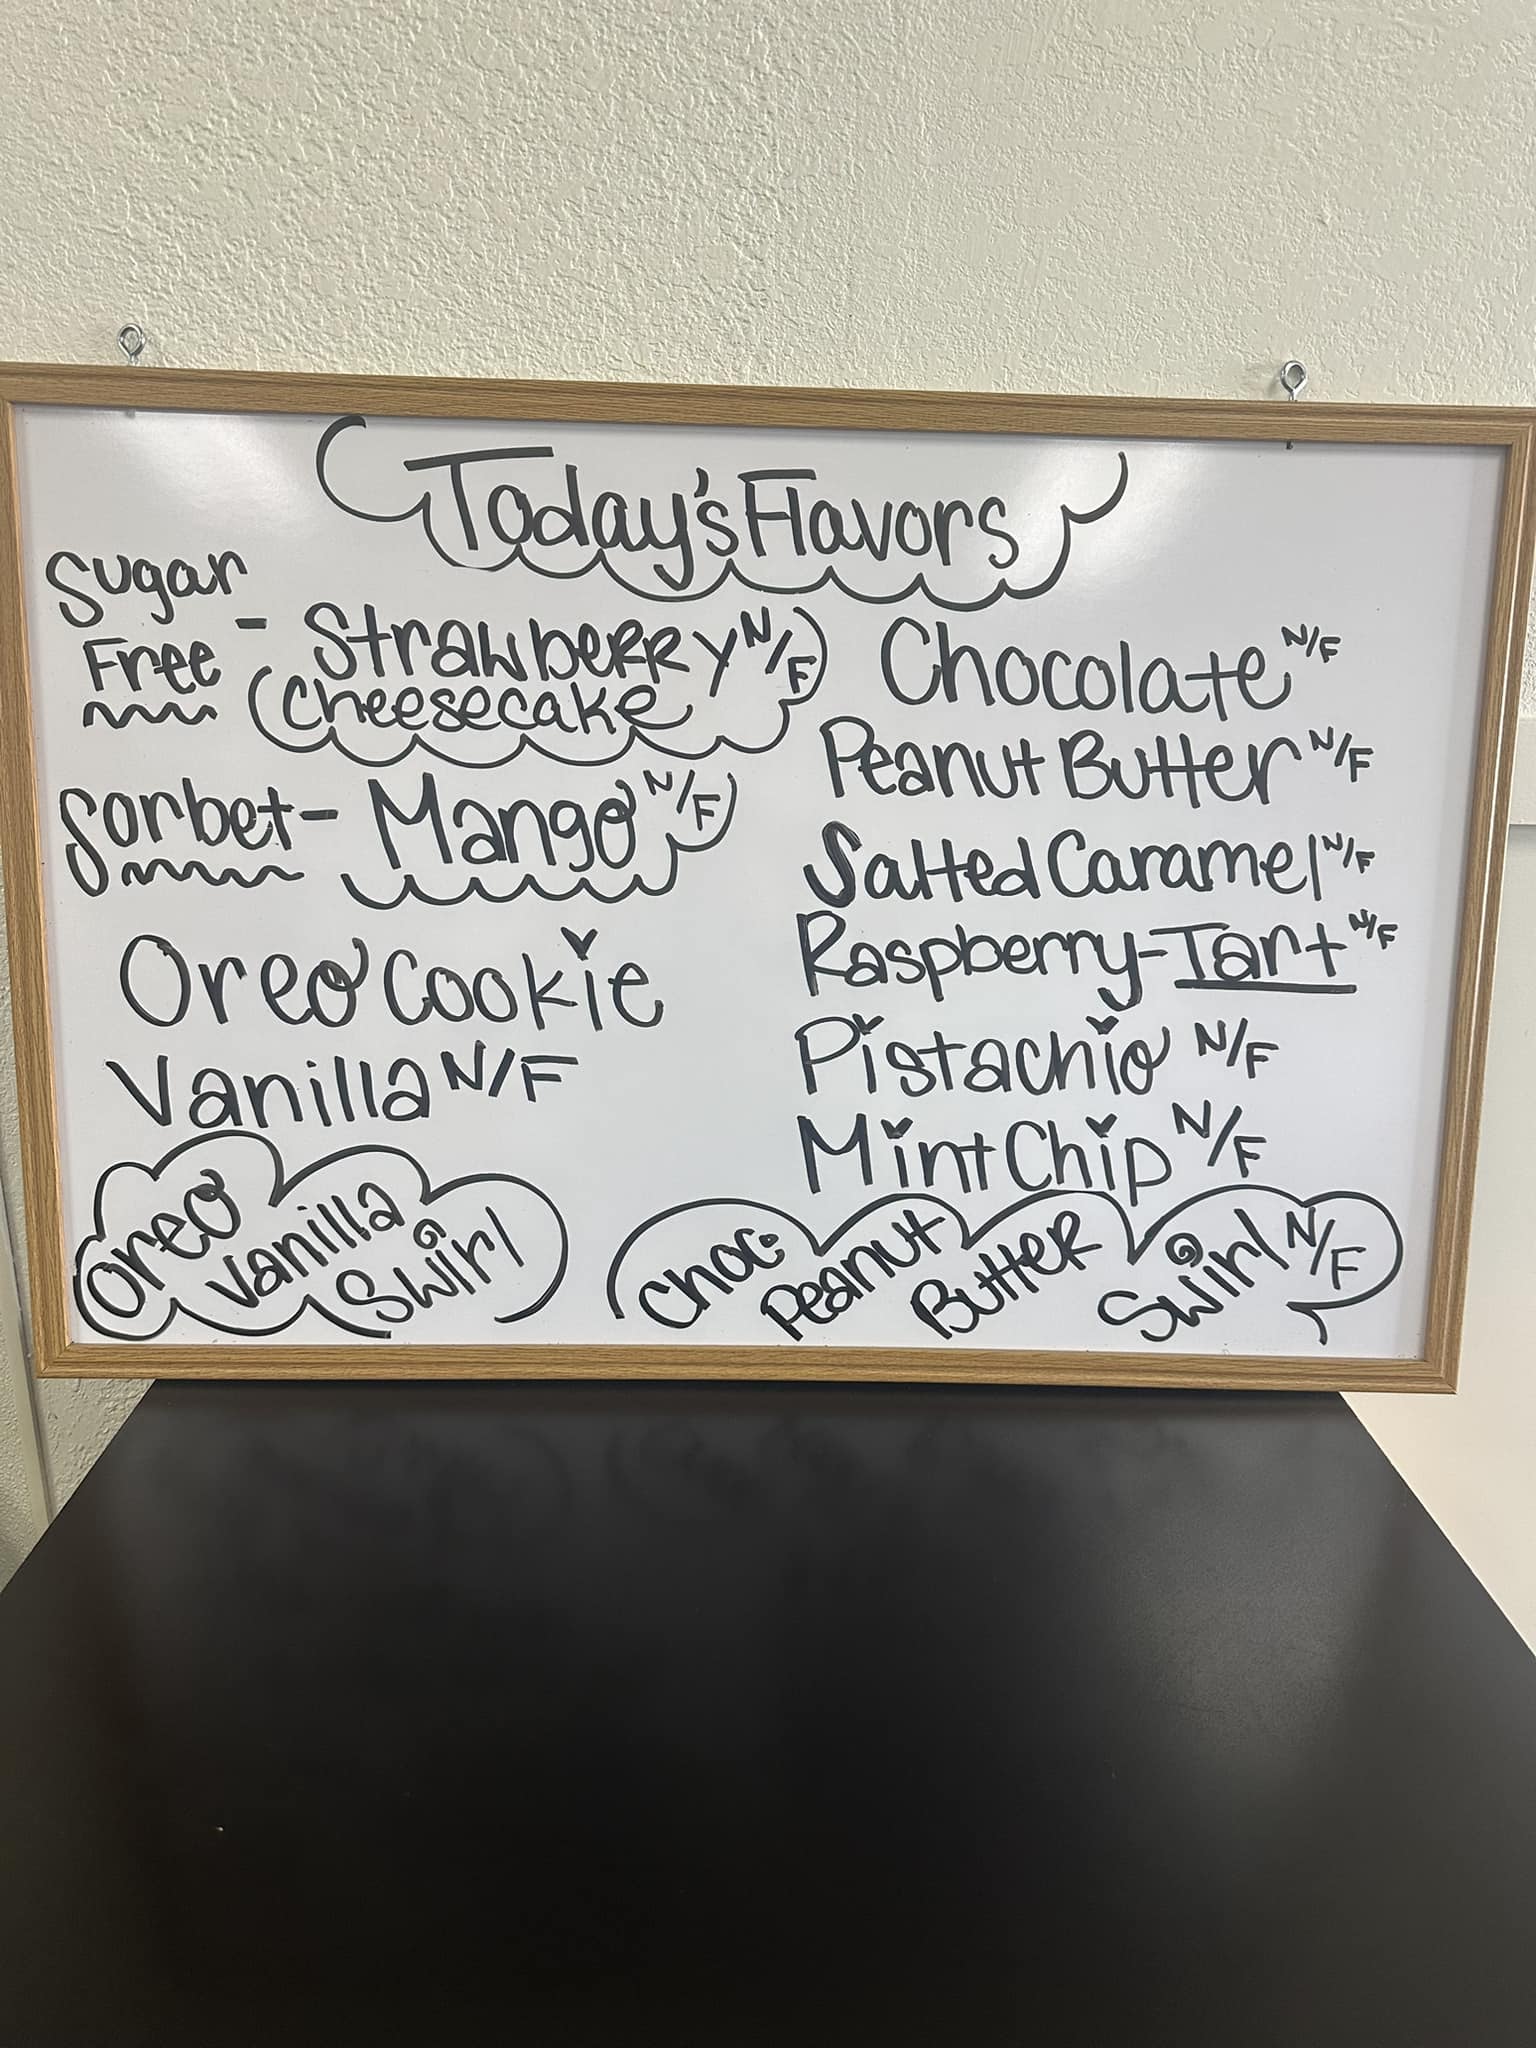 Today's Flavors
Sugar
Free - Strawberry N/F
Cheesecake
Sorbet - Mango N/F
Oreo Cookie
Vanilla N/F
Oreo Vanilla Swirl
Chocolate N/F
Peanut Butter N/F
Salted Caramel N/F
Raspberry-Tart N/F
Pistachio N/F
Mint Chip N/F
Choc. Peanut Butter Swirl N/F